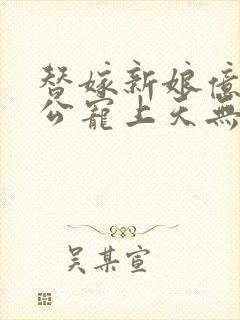 替嫁新娘億
公寵上天無
吴某宣